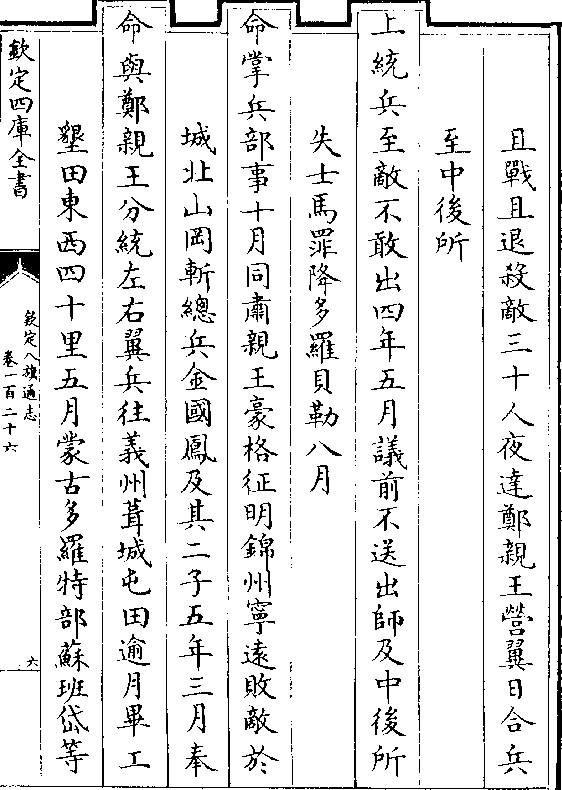 且戰且退殺敵三十人夜達鄭親王營翼日合兵
至中後所
上統兵至敵不敢出四年五月議前不送出師及中後所
失士馬罪降多羅貝勒八月
命掌兵部事十月同肅親王豪格征明錦州寧遠敗敵於
城北山岡斬總兵金國鳳及其二子五年三月奉
命與鄭親王分統左右翼兵往義州葺城屯田逾月畢工
墾田東西四十里五月蒙古多羅特部蘇班岱等
欽定四庫全書
欽定八旗通志
卷一百二十六
六